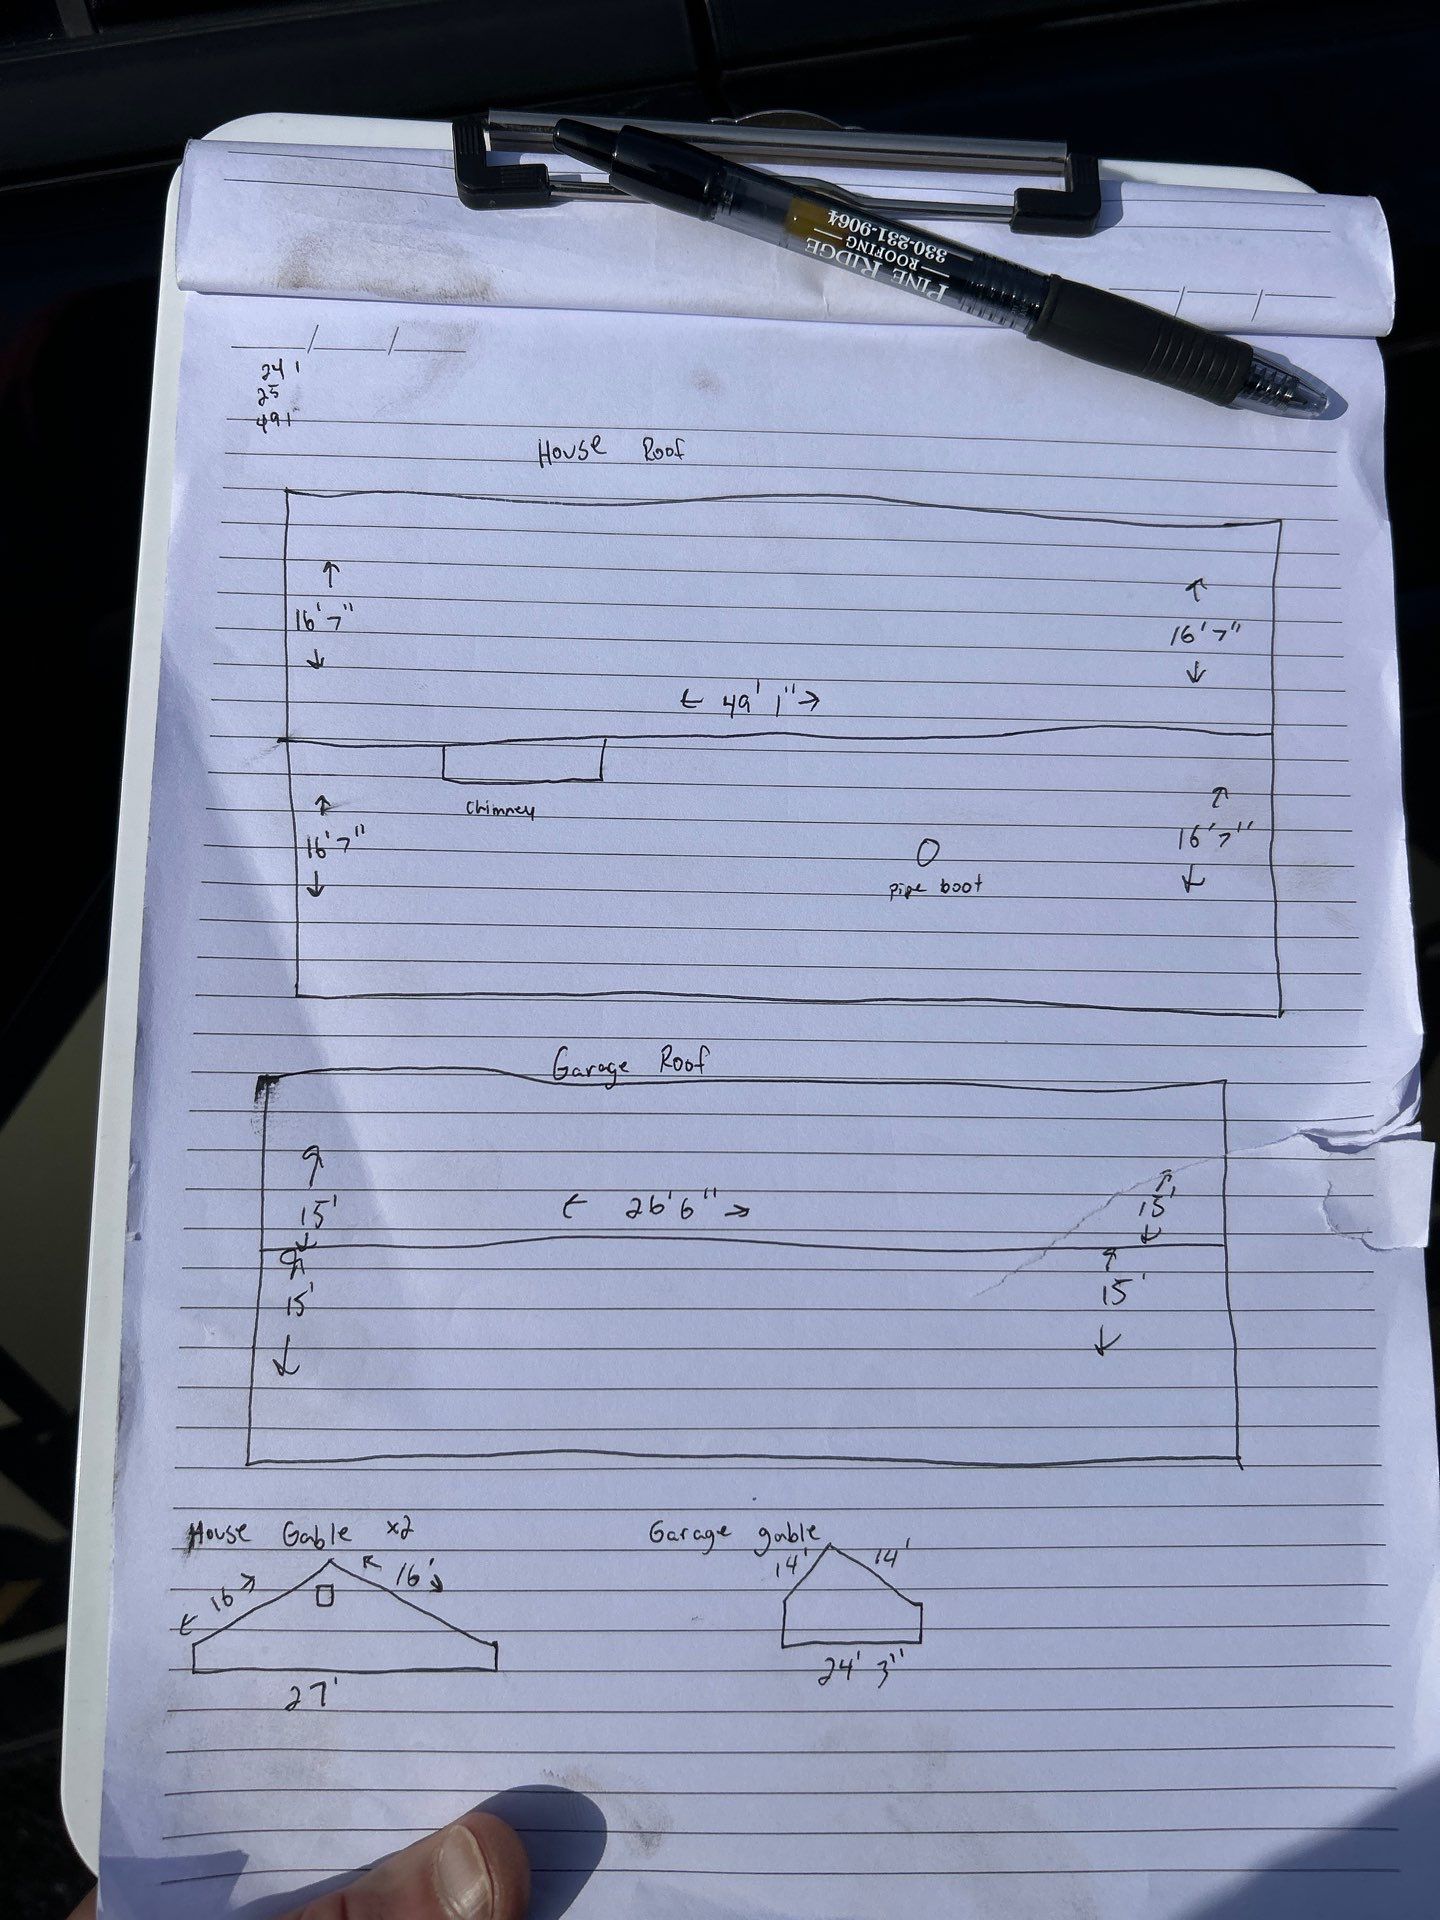 PINE RIDGE
ROOFING
330-231-9064
24 1
25
49 1
House Roof
16'7"
16'7"
49' 1"
Chimney
16'7"
16'7"
pipe boot
Garage Roof
15'
26'6"
15'
15'
15'
House Gable x2
Garage gable
16
16'
14'
14'
27'
24' 3"